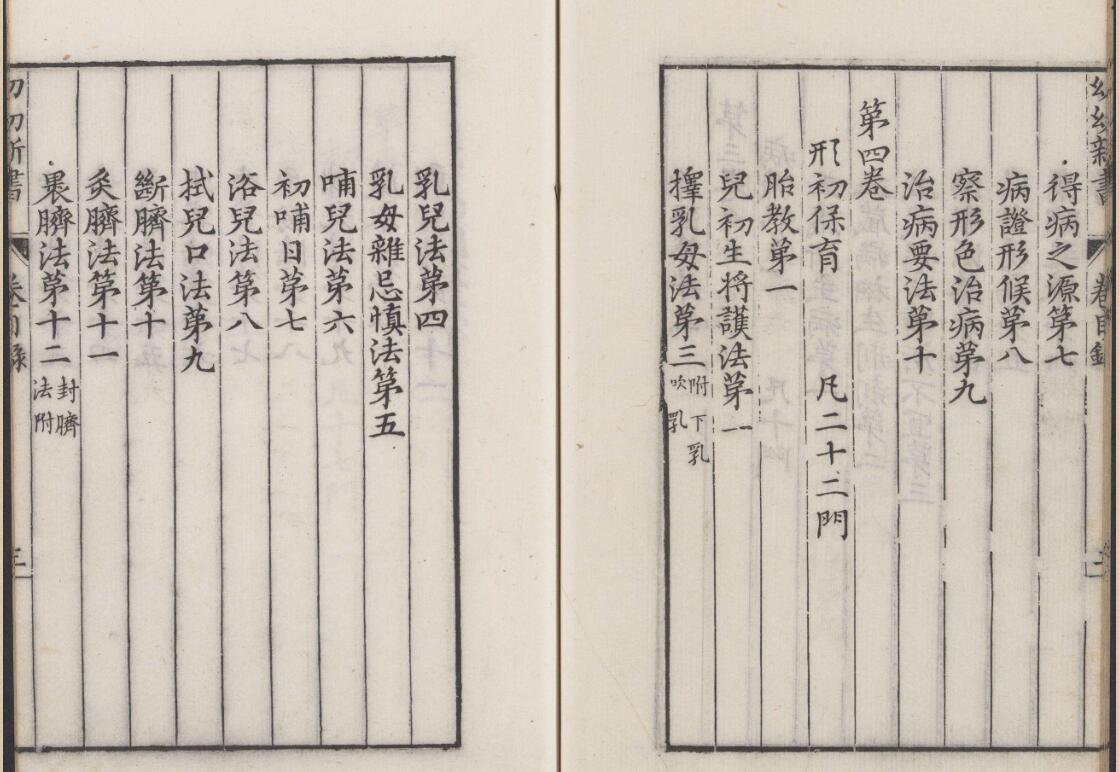 幼幼新書 卷目錄 二
得病之源第七
病證形候第八
察形色治病第九
治病要法第十
第四卷
形初保育 凡二十二門
胎教第一
兒初生將護法第一
擇乳母法第三 附下乳
吹乳
乳兒法第四
乳母雜忌慎法第五
哺兒法第六
初哺日第七
浴兒法第八
拭兒口法第九
斷臍法第十
灸臍法第十一
褁臍法第十二 封臍
法附
幼幼新書 卷目錄 三